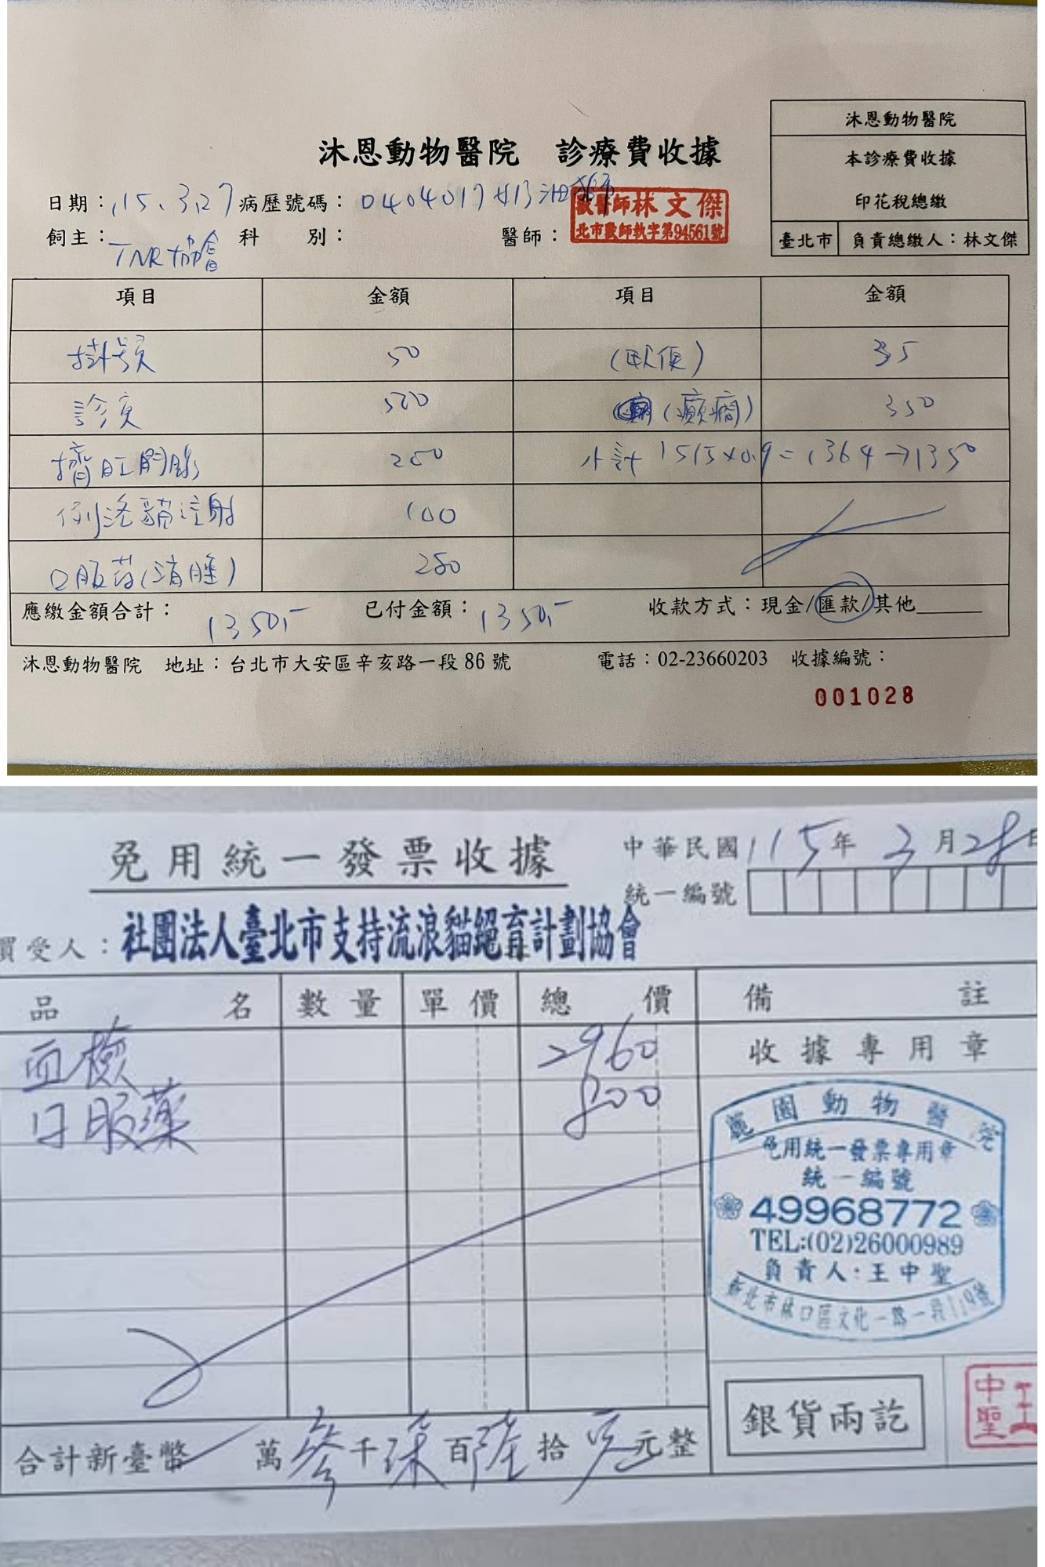 沐恩動物醫院
本診療費收據
印花稅總繳
臺北市 負責總繳人：林文傑
沐恩動物醫院 診療費收據
日期：115.3.27 病歷號碼：0404017
飼主：TNR協會 科 別： 醫師： 獸醫師林文傑
北市獸師執字第94561號
項目 金額 項目 金額
掛號 50 (軟便) 35
診療 500 (癲癇) 350
擠肛門腺 250 小計 1515x0.9=1364→1350
注射 100
口服药(消腫) 250
應繳金額合計：1350,- 已付金額：1350,- 收款方式：現金/匯款/其他
沐恩動物醫院 地址：台北市大安區辛亥路一段86號 電話：02-23660203 收據編號：
001028
免用統一發票收據 中華民國115年3月28日
統一編號
買受人：社團法人臺北市支持流浪貓絕育計劃協會
品名 數量 單價 總價 備註
血檢 2960 收據專用章
口服藥 800
園動物醫院
免用統一發票專用章
統一編號
49968772
TEL:(02)26000989
負責人：王中聖
新北市林口區文化一路一段119號
銀貨兩訖
王中聖
合計新臺幣 萬參千柒百陸拾零元整